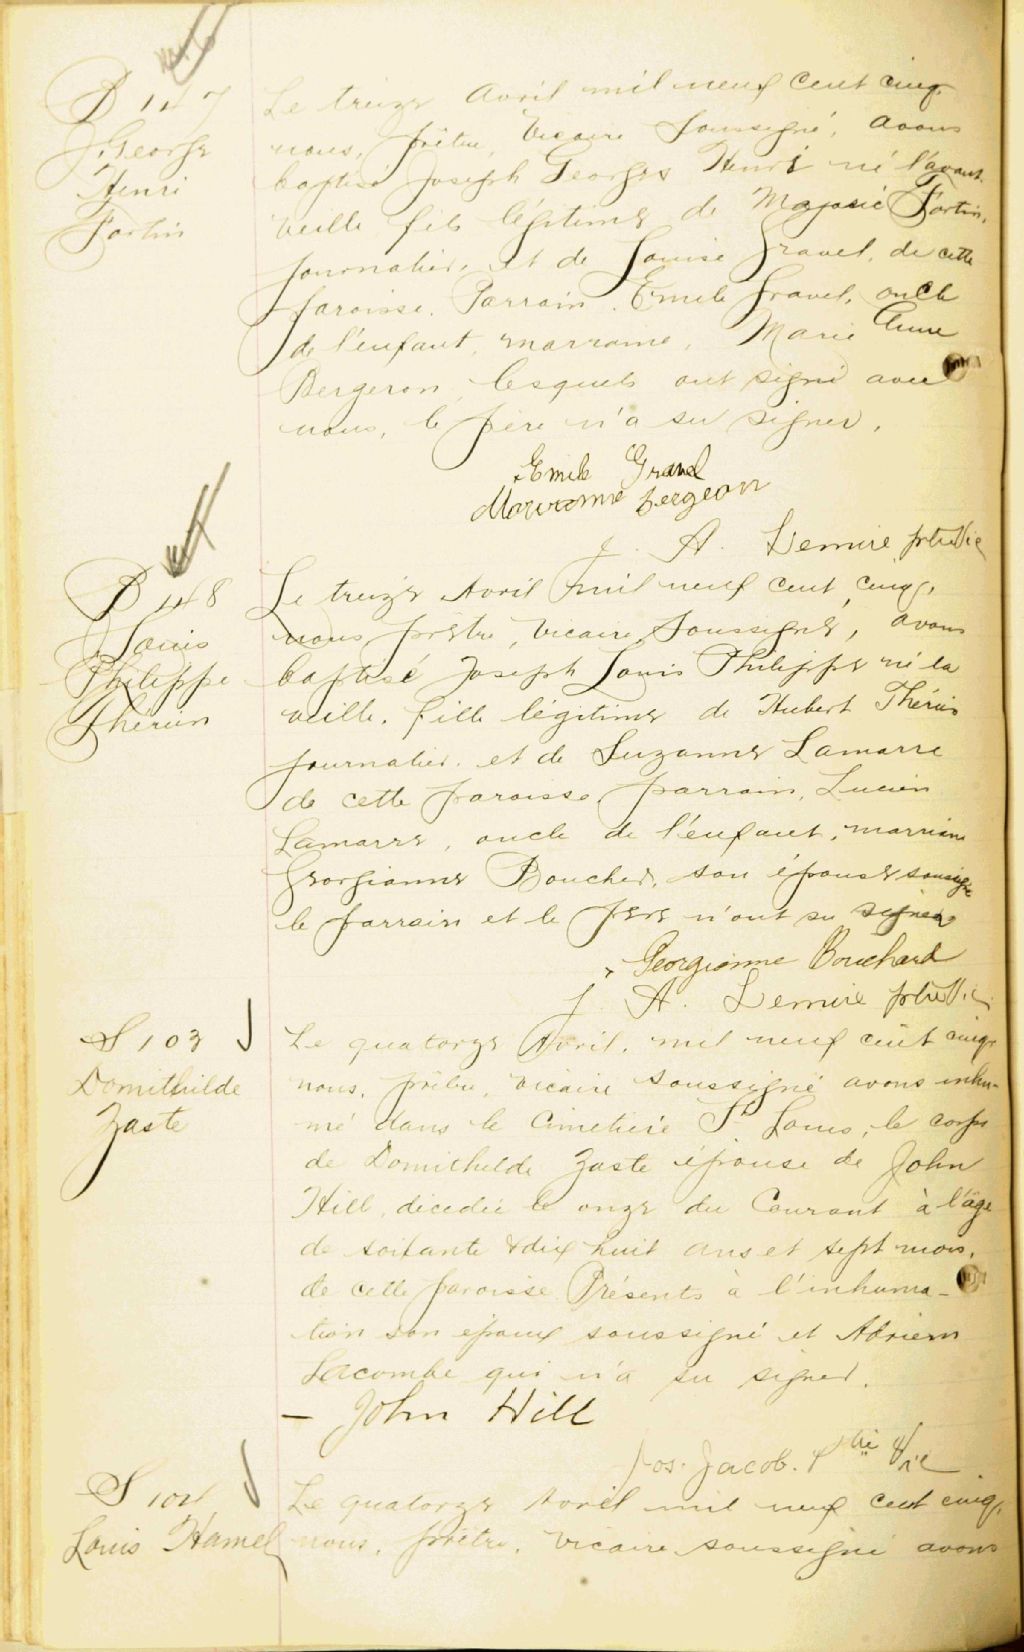 B 147
George
Henri
Fortin
Le treize Avril mil neuf cent cinq
nous, prêtre, Vicaire Soussigné, avons
baptisé Joseph Georges Henri né l'avant-
veille fils légitime de Fortin,
journalier, et de Louise Gravel, de cette
paroisse. Parrain, Emile Gravel, oncle
de l'enfant, marraine, Marie Anne
Bergeron, lesquels ont signé avec
nous, le père n'a su signer.
Emile Gravel
Bergeron
J. A. Lemire ptre Vic
B 148
Louis
Philippe
Le treize Avril mil neuf cent cinq,
nous prêtre, Vicaire Soussigné, avons
baptisé Joseph Louis Philippe né la
veille, fille légitime de Hubert
journalier, et de Suzanne Lamarre
de cette paroisse, parrain, Lucien
Lamarre, oncle de l'enfant, marraine
Georgianne Boucher, son épouse soussigné
le parrain et le père n'ont su signer
Georgianne Bouchard
J. A. Lemire ptre Vic.
S 103
Domithilde
Zaste
Le quatorze Avril, mil neuf cent cinq
nous, prêtre, vicaire soussigné avons inhu-
mé dans le Cimetière St Louis, le corps
de Domithilde Zaste épouse de John
Hill, décédée le onze du Courant à l'âge
de soixante & dix huit ans et sept mois,
de cette paroisse. Présents à l'inhuma-
tion son époux soussigné et Adrien
Lacombe qui n'a su signer.
– John Hill
Jos. Jacob. Ptre Vic
S 104
Louis Hamel
Le quatorze Avril mil neuf cent cinq,
nous, prêtre, vicaire soussigné avons